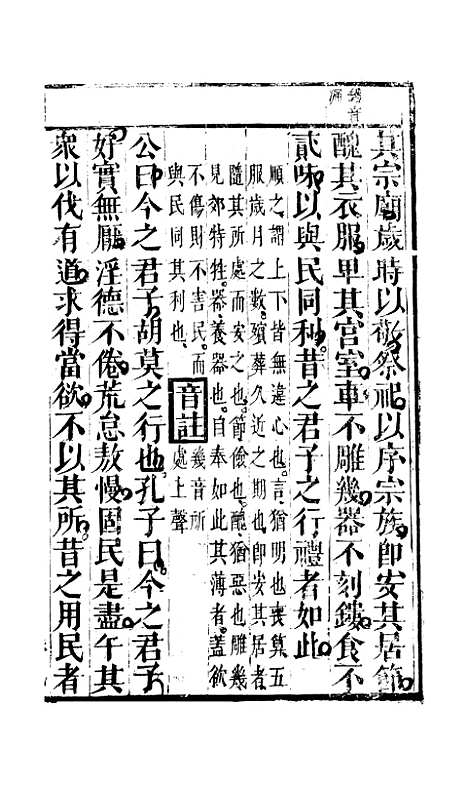 其宗廟歲時以敬祭祀以序宗族即安其居節
醜其衣服卑其宮室車不雕幾器不刻鏤食不
貳味以與民同利昔之君子之行禮者如此
順之謂上下皆無違心也言猶明也喪算五
服歲月之數殯葬久近之期也即安其居者
隨其所處而安之也節儉也醜猶惡也雕幾
見郊特牲器養器也自奉如此其薄者蓋欲
不傷財不害民而
與民同其利也
音註
幾音所
處上聲
公曰今之君子胡莫之行也孔子曰今之君子
好實無厭淫德不倦荒怠敖慢固民是盡午其
衆以伐有道求得當欲不以其所昔之用民者